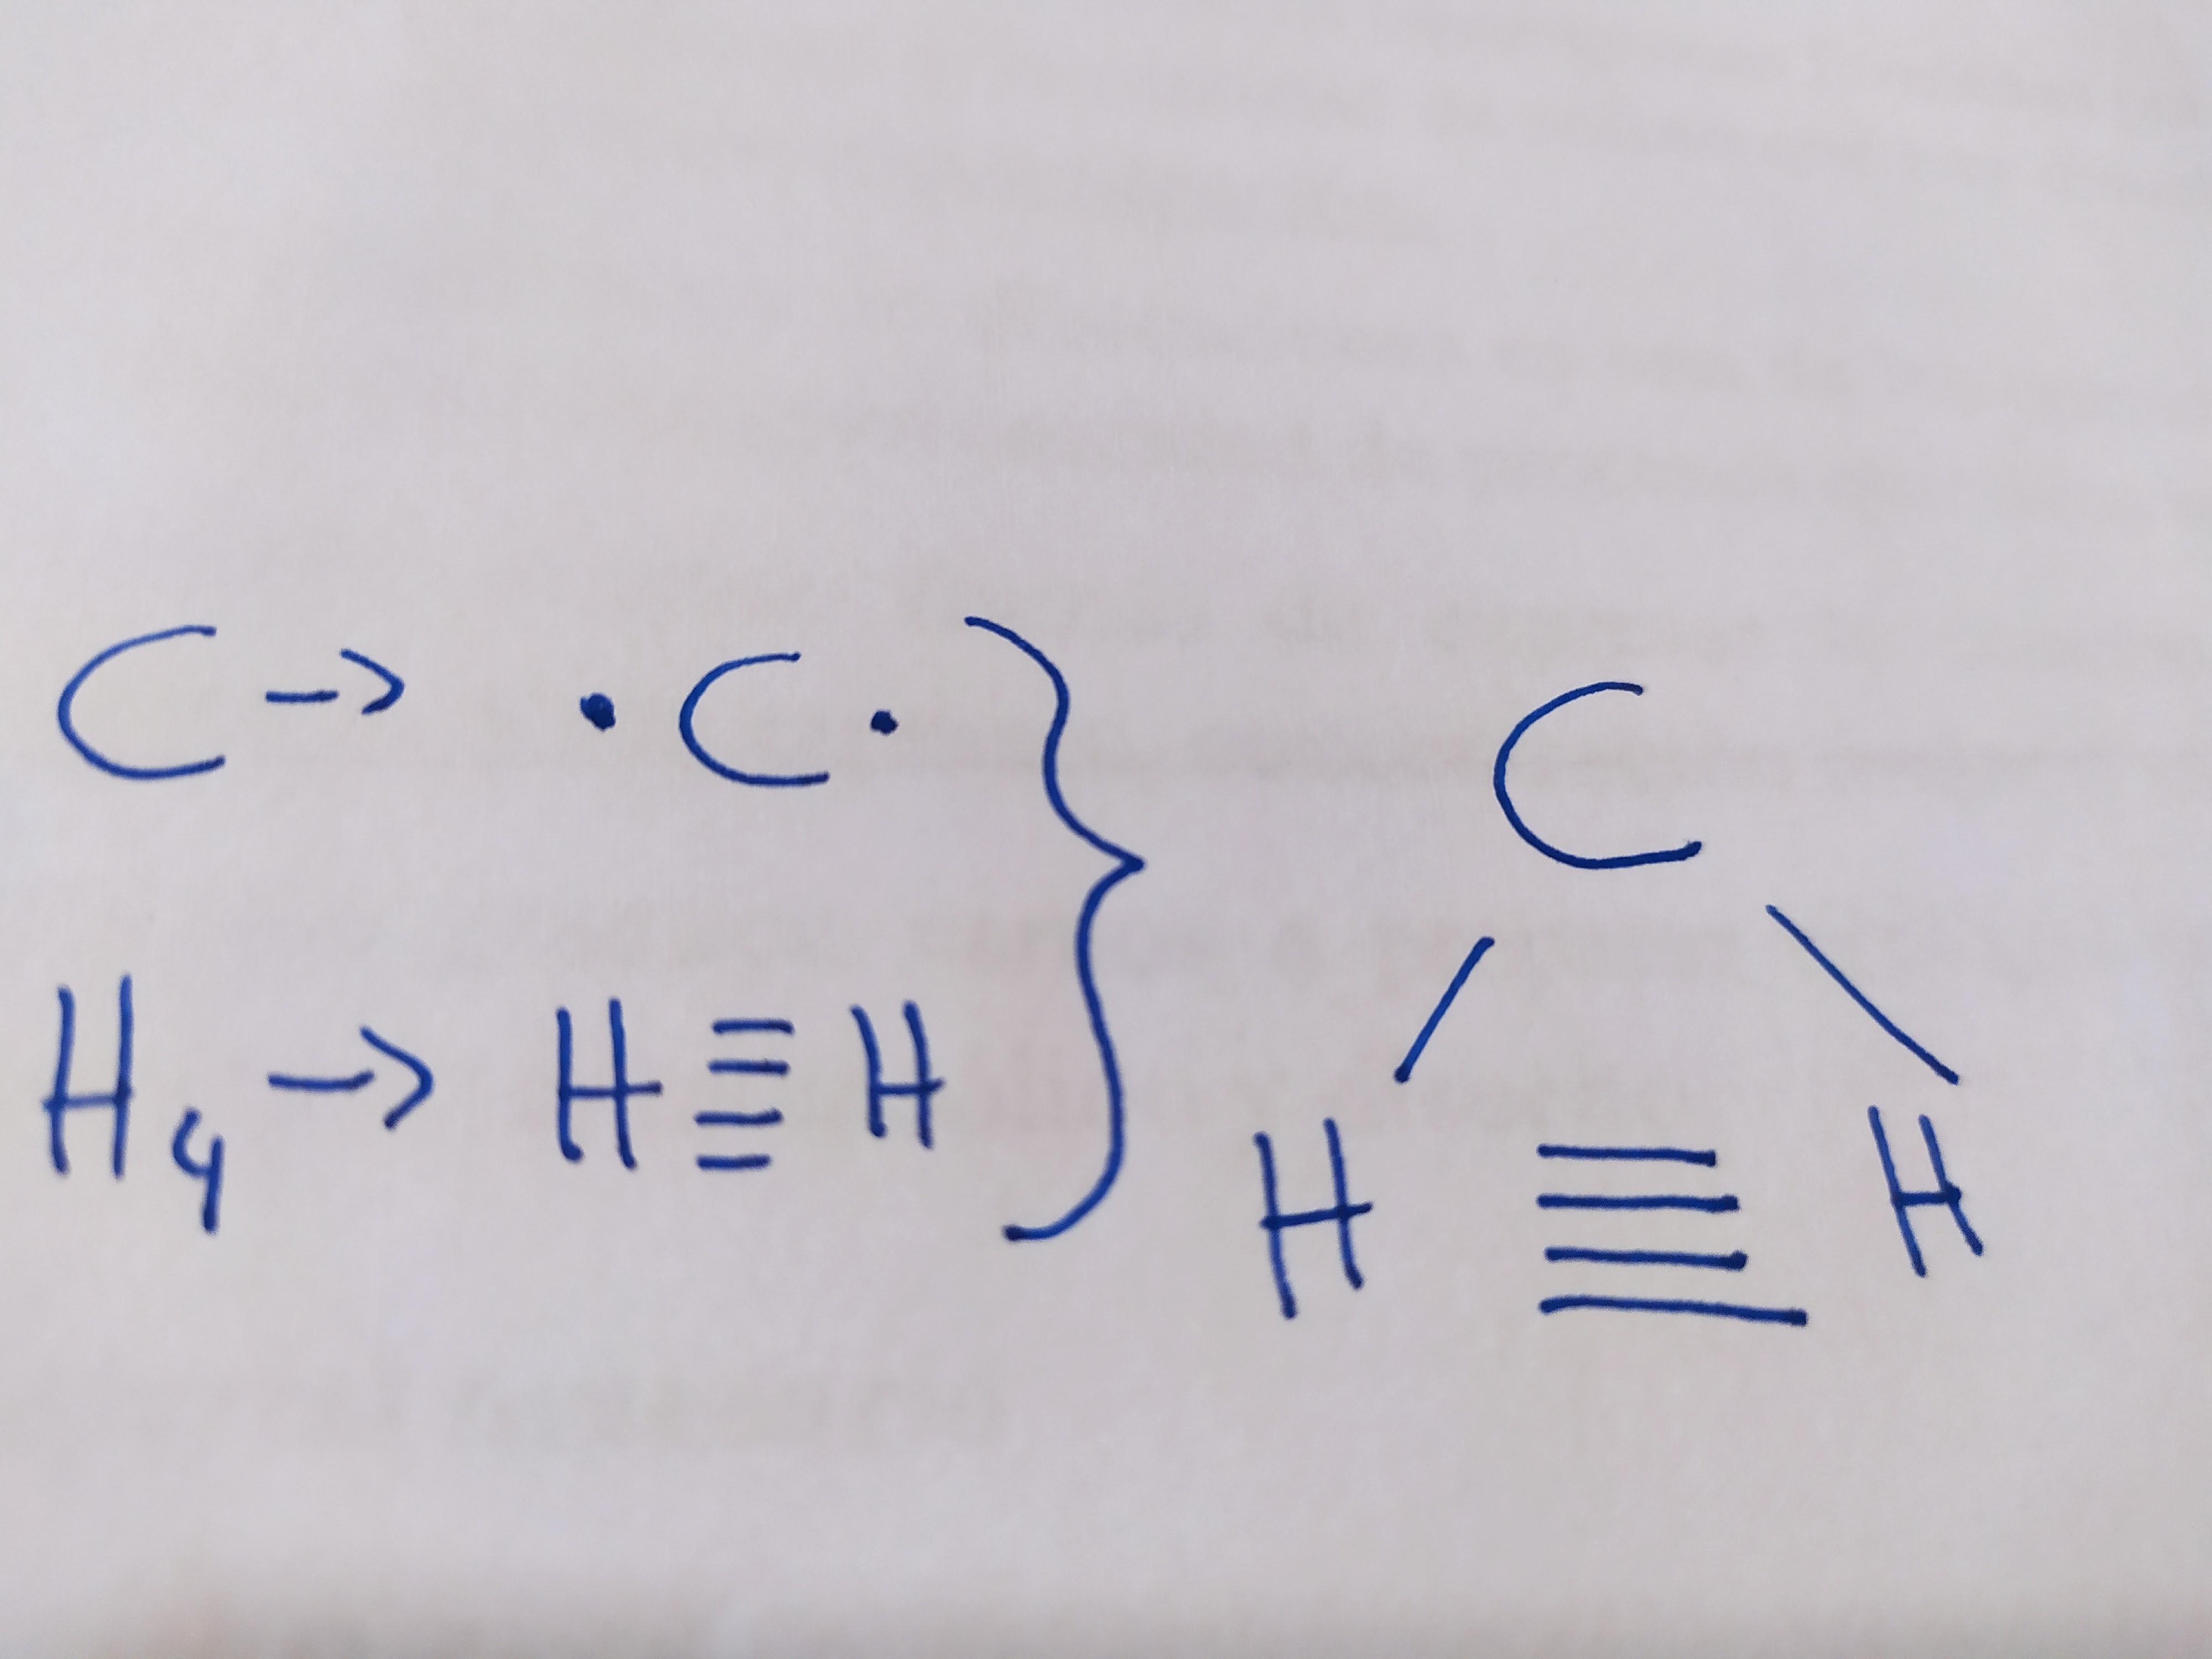 C -> • C •
H4 -> H ≣ H
C
H ≣ H